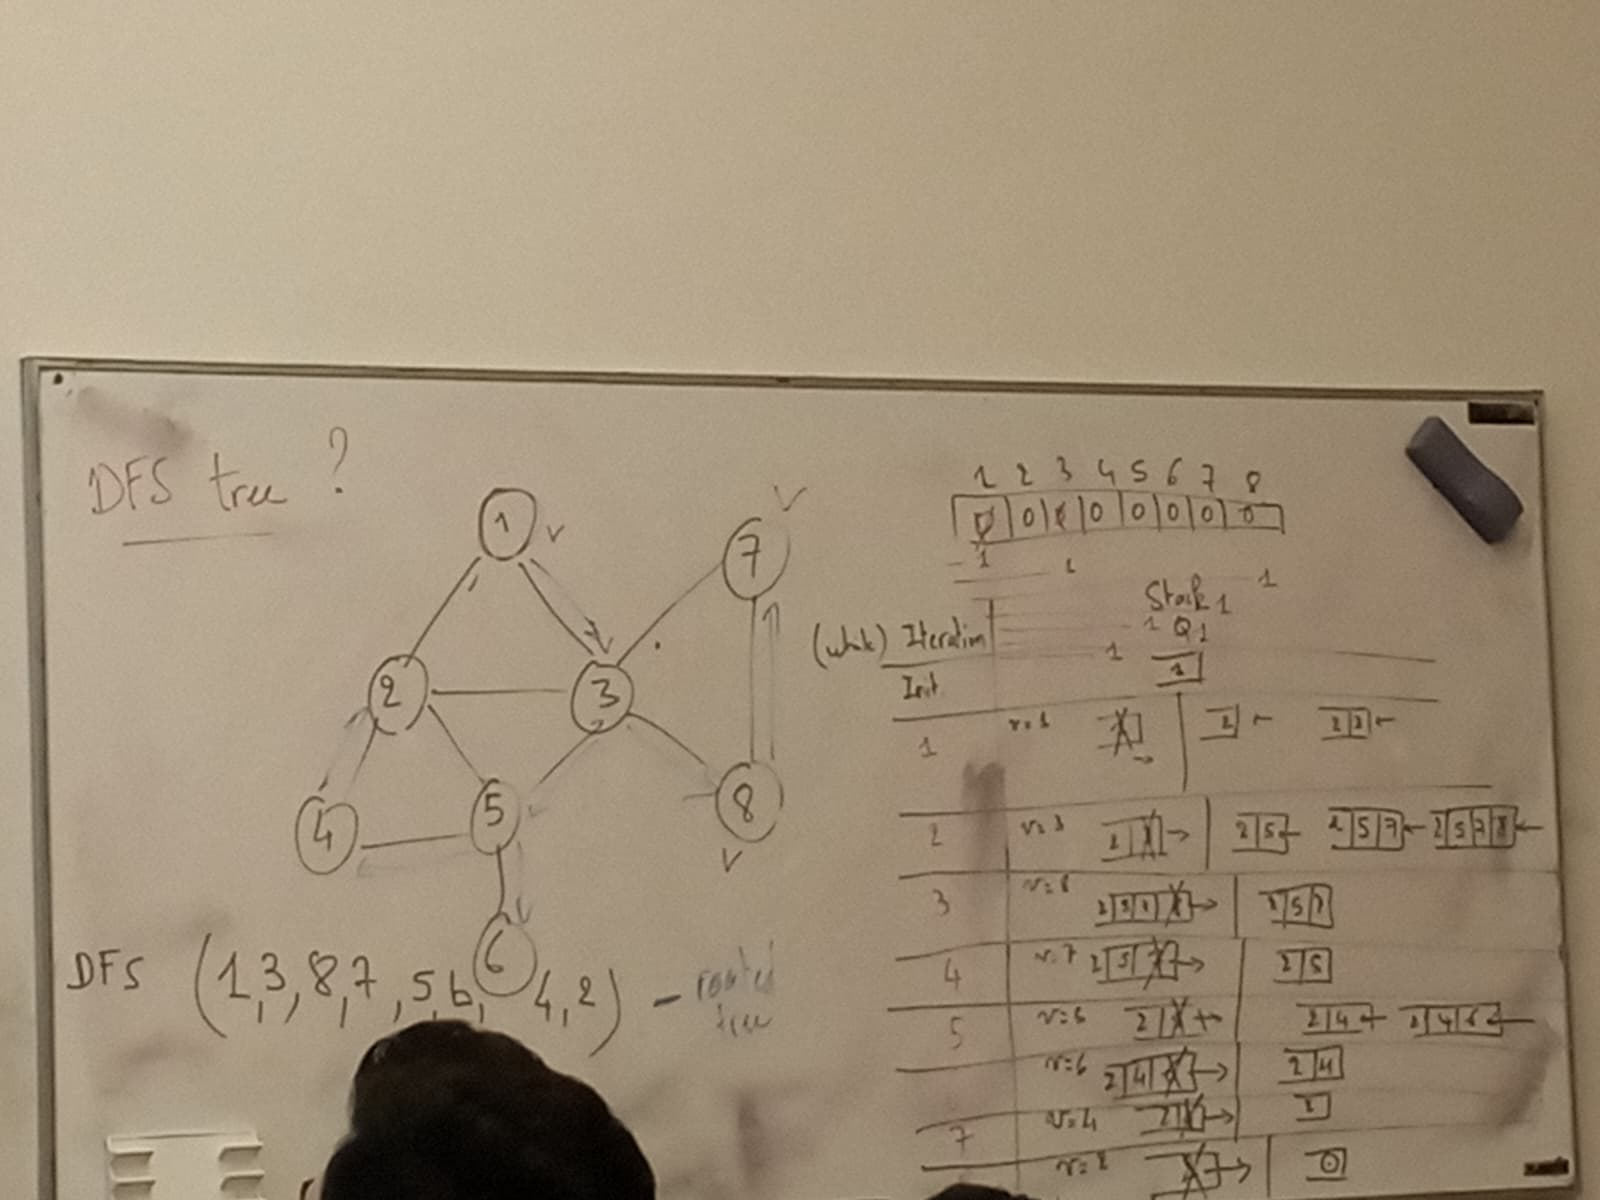 DFS tree ?
1
7
2
3
5
8
4
6
DFS (1,3,8,7,5,6,4,2) - rooted tree
1 2 3 4 5 6 7 8
0 0 0 0 0 0
1 1 1
Stack 1
1 Q 1
(while) Iteration 1
Init. 1
1 v=1 2
2 v=3 2 5 2 5 7 2 5 7 8
3 2 5 7
4 v=7 2 5 7 2 5
5 2 2 4 2 4 6
v=6 2 4 6 2 4
7 v=4 2
v=2 0